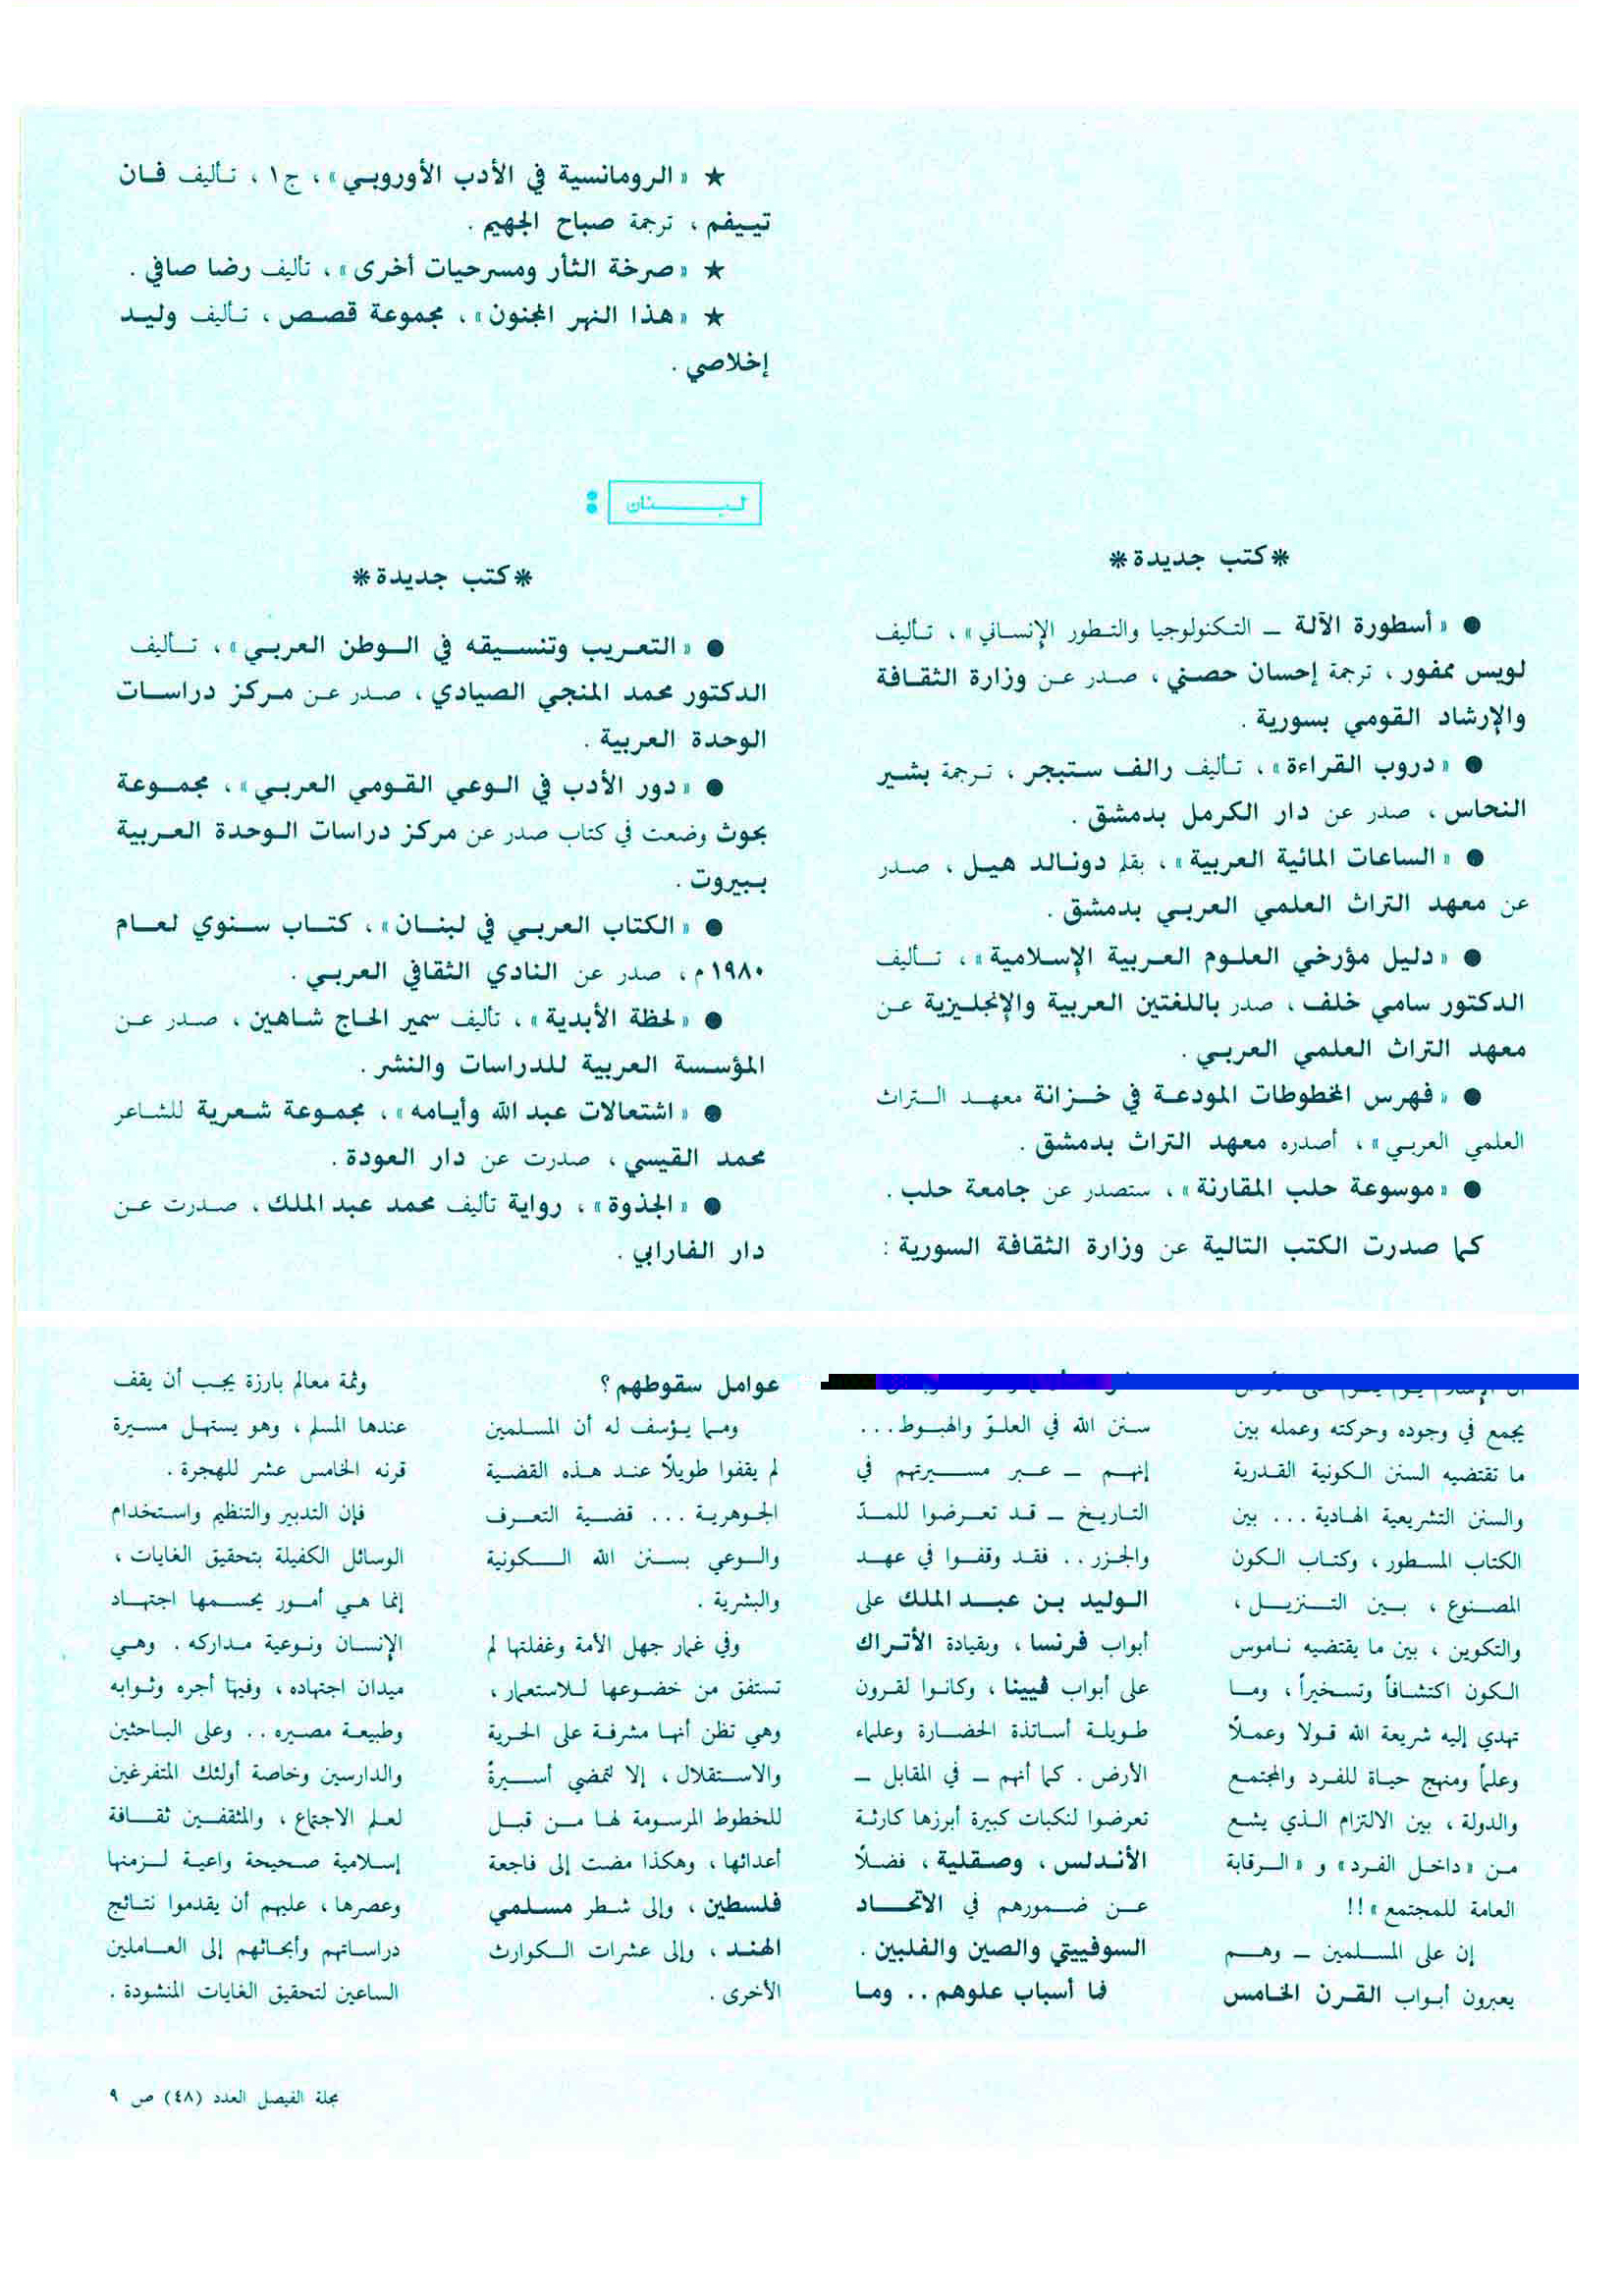 *كتب جديدة*
● «أسطورة الآلة ــ التكنولوجيا والتطور الإنساني»، تأليف
لويس ممفور، ترجمة إحسان حصني، صدر عن وزارة الثقافة
والإرشاد القومي بسورية.
● «دروب القراءة»، تأليف رالف ستيجر، ترجمة بشير
النحاس، صدر عن دار الكرمل بدمشق.
● «الساعات المائية العربية»، بقلم دونالد هيل، صدر
عن معهد التراث العلمي العربي بدمشق.
● «دليل مؤرخي العلوم العربية الإسلامية»، تأليف
الدكتور سامي خلف، صدر باللغتين العربية والإنجليزية عن
معهد التراث العلمي العربي.
● «فهرس المخطوطات المودعة في خزانة معهد التراث
العلمي العربي»، أصدره معهد التراث بدمشق.
● «موسوعة حلب المقارنة»، ستصدر عن جامعة حلب.
كما صدرت الكتب التالية عن وزارة الثقافة السورية:
★ «الرومانسية في الأدب الأوروبي»، ج١، تأليف فان
تييفم، ترجمة صباح الجهيم.
★ «صرخة الثأر ومسرحيات أخرى»، تأليف رضا صافي.
★ «هذا النهر المجنون»، مجموعة قصص، تأليف وليد
إخلاصي.
لبنان:
*كتب جديدة*
● «التعريب وتنسيقه في الوطن العربي»، تأليف
الدكتور محمد المنجي الصيادي، صدر عن مركز دراسات
الوحدة العربية.
● «دور الأدب في الوعي القومي العربي»، مجموعة
بحوث وضعت في كتاب صدر عن مركز دراسات الوحدة العربية
ببيروت.
● «الكتاب العربي في لبنان»، كتاب سنوي لعام
١٩٨٠م، صدر عن النادي الثقافي العربي.
● «لحظة الأبدية»، تأليف سمير الحاج شاهين، صدر عن
المؤسسة العربية للدراسات والنشر.
● «اشتعالات عبد الله وأيامه»، مجموعة شعرية للشاعر
محمد القيسي، صدرت عن دار العودة.
● «الجذوة»، رواية تأليف محمد عبد الملك، صدرت عن
دار الفارابي.
يجمع في وجوده وحركته وعمله بين
ما تقتضيه السنن الكونية القدرية
والسنن التشريعية الهادية... بين
الكتاب المسطور، وكتاب الكون
المصنوع، بين التنزيل،
والتكوين، بين ما يقتضيه ناموس
الكون اكتشافاً وتسخيراً، وما
تهدي إليه شريعة الله قولا وعملًا
وعلماً ومنهج حياة للفرد والمجتمع
والدولة، بين الالتزام الذي يشع
من «داخل الفرد» و «الرقابة
العامة للمجتمع»!!
إن على المسلمين ــ وهم
يعبرون أبواب القرن الخامس
سنن الله في العلوّ والهبوط...
إنهم ــ عبر مسيرتهم في
التاريخ ــ قد تعرضوا للمدّ
والجزر.. فقد وقفوا في عهد
الوليد بن عبد الملك على
أبواب فرنسا، وبقيادة الأتراك
على أبواب ڤيينا، وكانوا لقرون
طويلة أساتذة الحضارة وعلماء
الأرض. كما أنهم ــ في المقابل ــ
تعرضوا لنكبات كبيرة أبرزها كارثة
الأندلس، وصقلية، فضلًا
عن ضمورهم في الاتحاد
السوفييتي والصين والفلبين.
فما أسباب علوهم.. وما
عوامل سقوطهم؟
ومما يؤسف له أن المسلمين
لم يقفوا طويلًا عند هذه القضية
الجوهرية... قضية التعرف
والوعي بسنن الله الكونية
والبشرية.
وفي غمار جهل الأمة وغفلتها لم
تستفق من خضوعها للاستعمار،
وهي تظن أنها مشرفة على الحرية
والاستقلال، إلا لتمضي أسيرةً
للخطوط المرسومة لها من قبل
أعدائها، وهكذا مضت إلى فاجعة
فلسطين، وإلى شطر مسلمي
الهند، وإلى عشرات الكوارث
الأخرى.
وثمة معالم بارزة يجب أن يقف
عندها المسلم، وهو يستهل مسيرة
قرنه الخامس عشر للهجرة.
فإن التدبير والتنظيم واستخدام
الوسائل الكفيلة بتحقيق الغايات،
إنما هي أمور يحسمها اجتهاد
الإنسان ونوعية مداركه. وهي
ميدان اجتهاده، وفيها أجره وثوابه
وطبيعة مصيره.. وعلى الباحثين
والدارسين وخاصة أولئك المتفرغين
لعلم الاجتماع، والمثقفين ثقافة
إسلامية صحيحة واعية لزمنها
وعصرها، عليهم أن يقدموا نتائج
دراساتهم وأبحاثهم إلى العاملين
الساعين لتحقيق الغايات المنشودة.
مجلة الفيصل العدد (٤٨) ص ٩